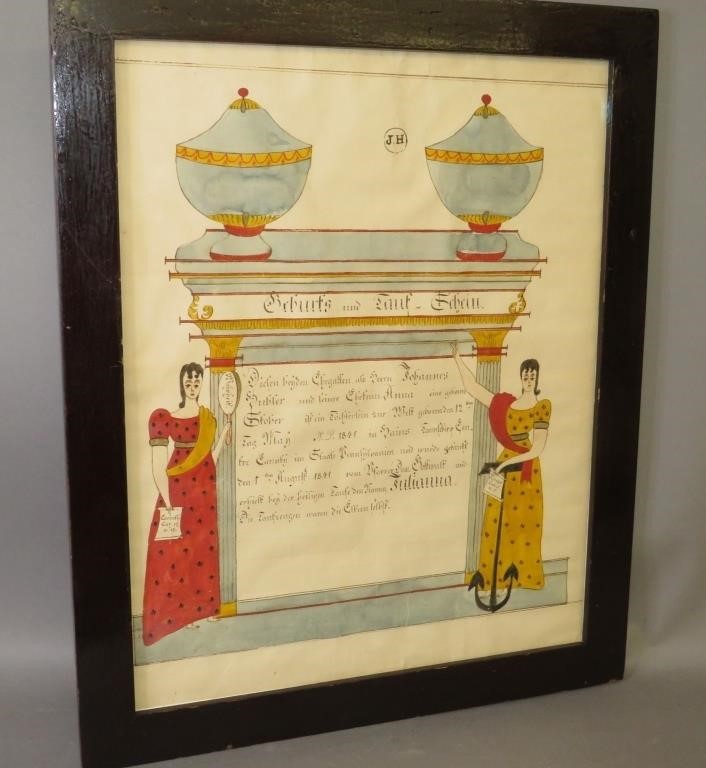 J.H
Geburts und Tauf-Schein.
Diesen beyden Ehegatten als Herrn Johannes
Hubler und seiner Ehefrau Anna eine geborne
Stober ist ein Töchterlein zur Welt geboren den 12ten
Tag May A.D. 1841 in Hains Taunschip Cen
tre Caunty im Staate Pennsylvanien und wurde getauft
den 1ten August 1841 vom Pfarrer Dan. Gottwalt und
erhielt bey der heiligen Taufe den Namen Julianna.
Die Taufzeugen waren die Eltern selbst.
Wahrheit
Cap. 13